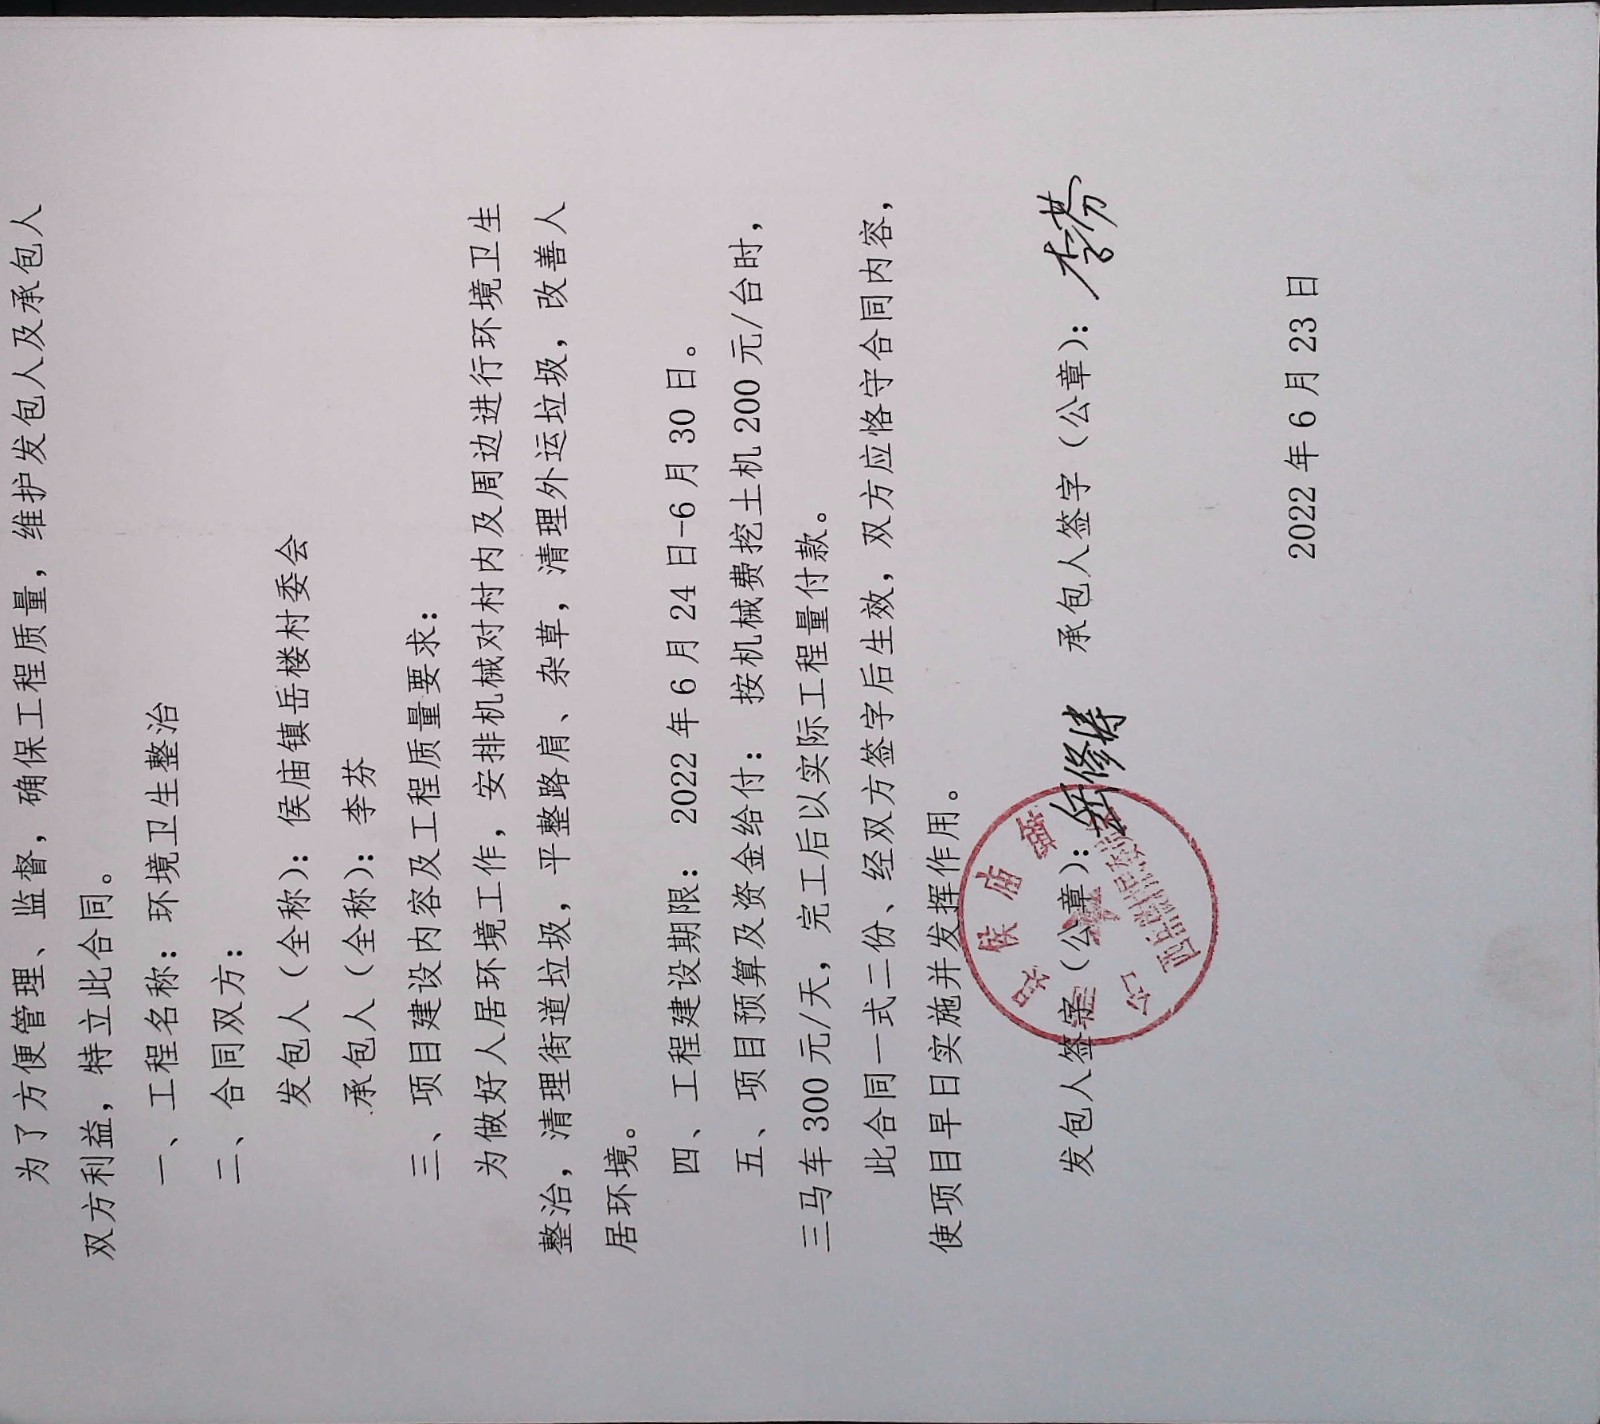 为了方便管理、监督，确保工程质量，维护发包人及承包人
双方利益，特立此合同。
一、工程名称：环境卫生整治
二、合同双方：
发包人（全称）：侯庙镇岳楼村委会
承包人（全称）：李芬
三、项目建设内容及工程质量要求：
为做好人居环境工作，安排机械对村内及周边进行环境卫生
整治，清理街道垃圾，平整路肩、杂草，清理外运垃圾，改善人
居环境。
四、工程建设期限：2022年6月24日-6月30日。
五、项目预算及资金给付：按机械费挖土机200元/台时，
三马车300元/天，完工后以实际工程量付款。
此合同一式二份、经双方签字后生效，双方应恪守合同内容，
使项目早日实施并发挥作用。
发包人签字（公章）：岳修 承包人签字（公章）：李芬
侯庙镇
2022年6月23日